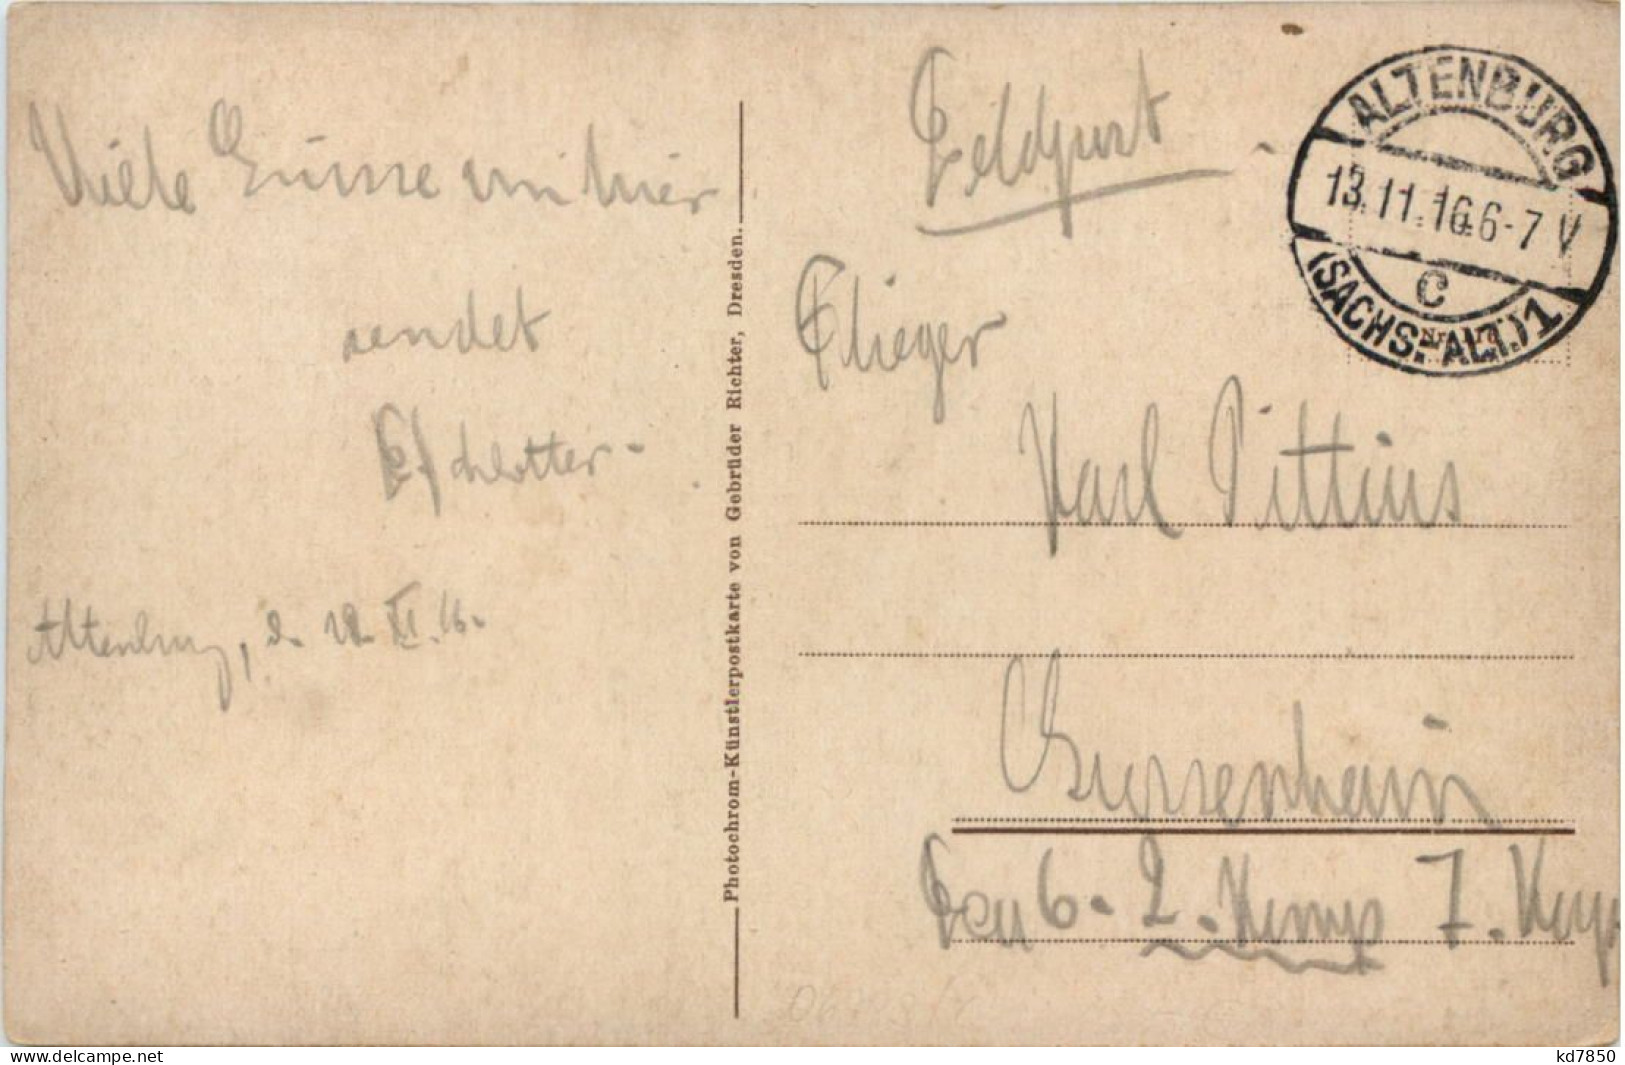 Viele Grüsse von hier
sendet
Altenburg, d. 12. XI. 16.
Photochrom-Künstlerpostkarte von Gebrüder Richter, Dresden.
Feldpost
ALTENBURG
13.11.16.6-7 V
c
(SACHS.-ALT.) 1
Flieger
Karl Pittius
6. 2. Komp 7. Korp
www.delcampe.net
kd7850